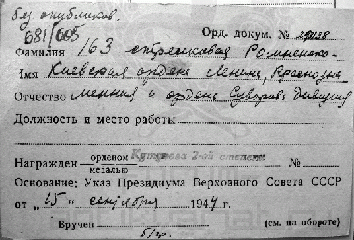 без опубликов.
081/605
Орд. докум. №
Фамилия 163 стрелковая Ромненско-
Имя Киевская ордена Ленина, Краснозна-
Отчество менная и ордена Суворова дивизия
Должность и место работы
Награжден орденом медалью Кутузова 2-ой степени №
Основание: Указ Президиума Верховного Совета СССР
от "15" сентября 1944 г.
Вручен (см. на обороте)